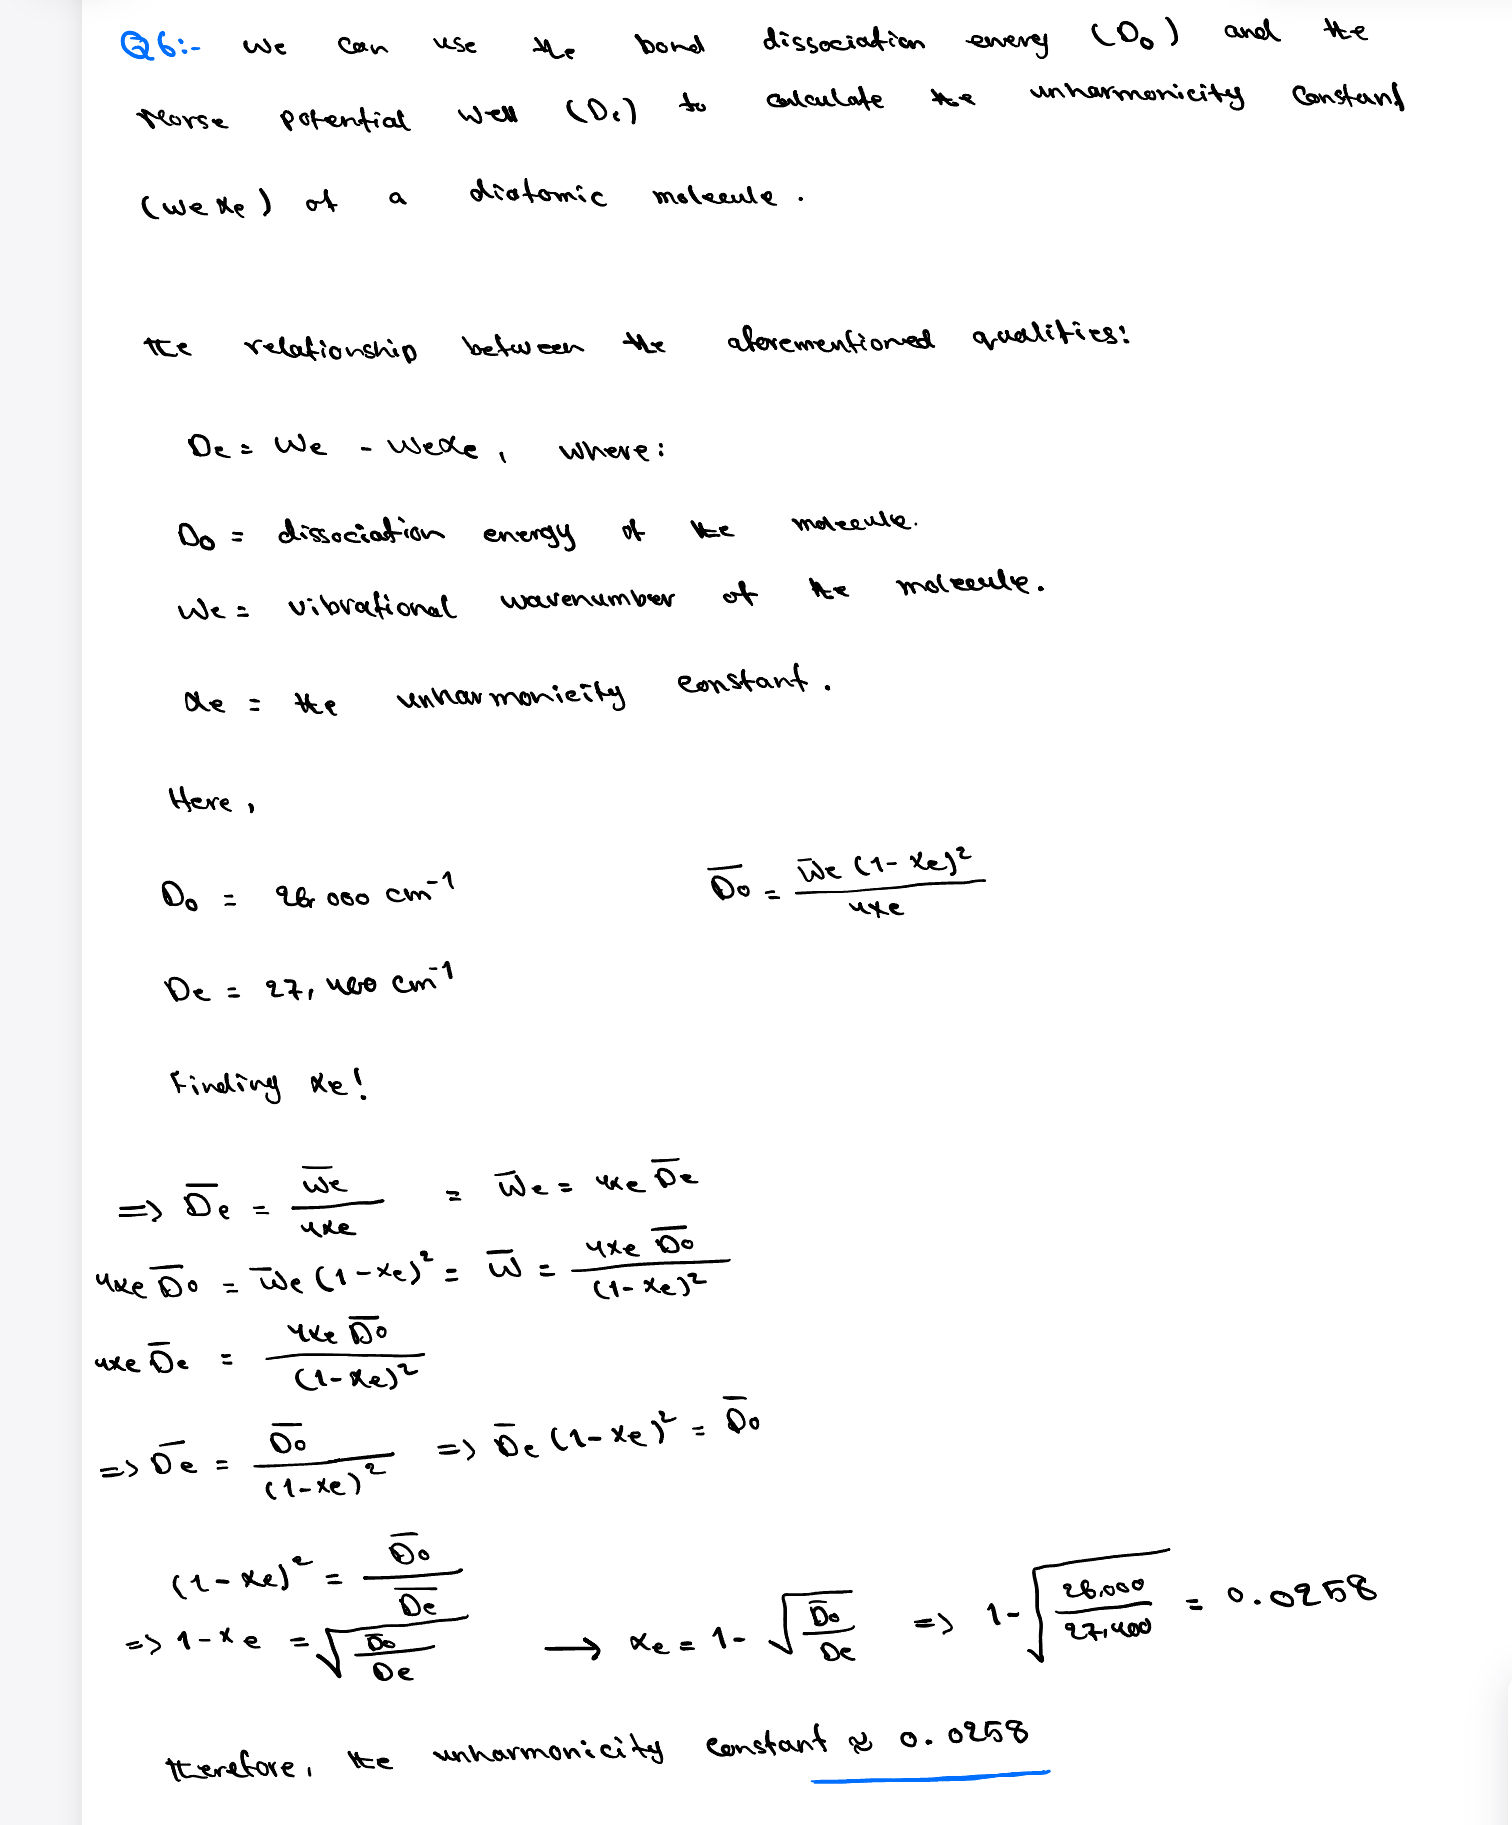 Q6:- We can use the bond dissociation energy (D₀) and the
Morse potential well (Dₑ) to calculate the unharmonicity constant
(wexe) of a diatomic molecule.
the relationship between the aforementioned qualities:
De = We - wexe, where:
D₀ = dissociation energy of the molecule.
We = vibrational wavenumber of the molecule.
xe = the unharmonicity constant.
Here,
D₀ = 26 000 cm⁻¹
D̅₀ = w̅e (1-xe)² / 4xe
De = 27,400 cm⁻¹
Finding xe!
=> D̅e = w̅e / 4xe = w̅e = 4xe D̅e
4xe D̅₀ = w̅e (1-xe)² = w̅ = 4xe D̅₀ / (1-xe)²
4xe D̅e = 4xe D̅₀ / (1-xe)²
=> D̅e = D̅₀ / (1-xe)² => D̅e (1-xe)² = D̅₀
(1-xe)² = D̅₀ / D̅e
=> 1-xe = √(D̅₀ / De) → xe = 1- √(D̅₀ / De) => 1- √(26,000 / 27,400) = 0.0258
therefore, the unharmonicity constant ≈ 0.0258